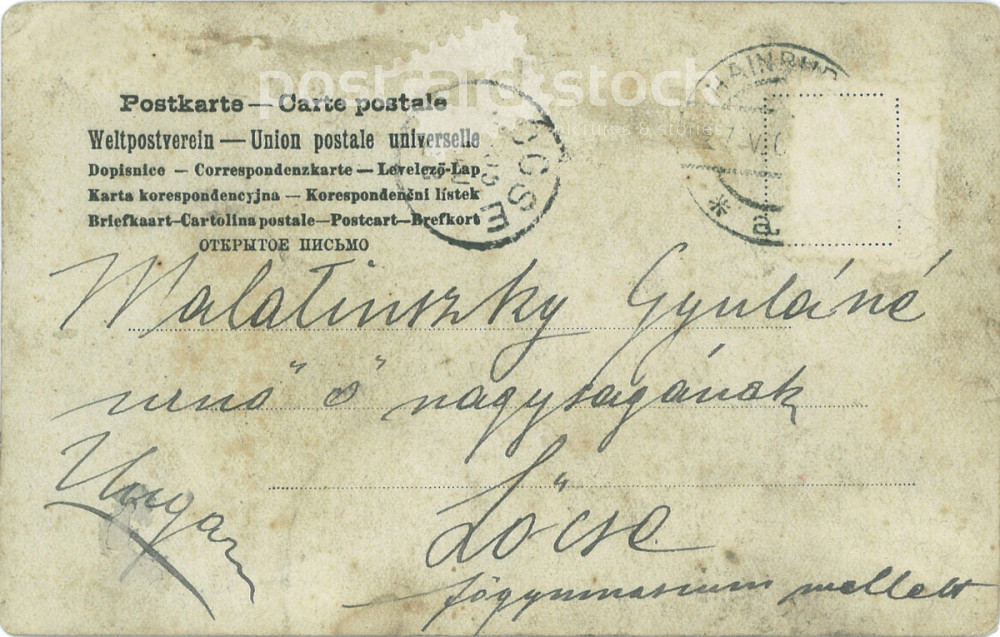 postcards stock
pictures & stories
Postkarte — Carte postale
Weltpostverein — Union postale universelle
Dopisnice — Correspondenzkarte — Levelező-Lap
Karta korespondencyjna — Korespondenční lístek
Briefkaart—Cartolina postale—Postcart—Brefkort
ОТКРЫТОЕ ПИСЬМО
HAINBURG
Malatinszky Gyuláné
urnő ő nagyságának
Ungarn
Lőcse
főgymnasium mellett